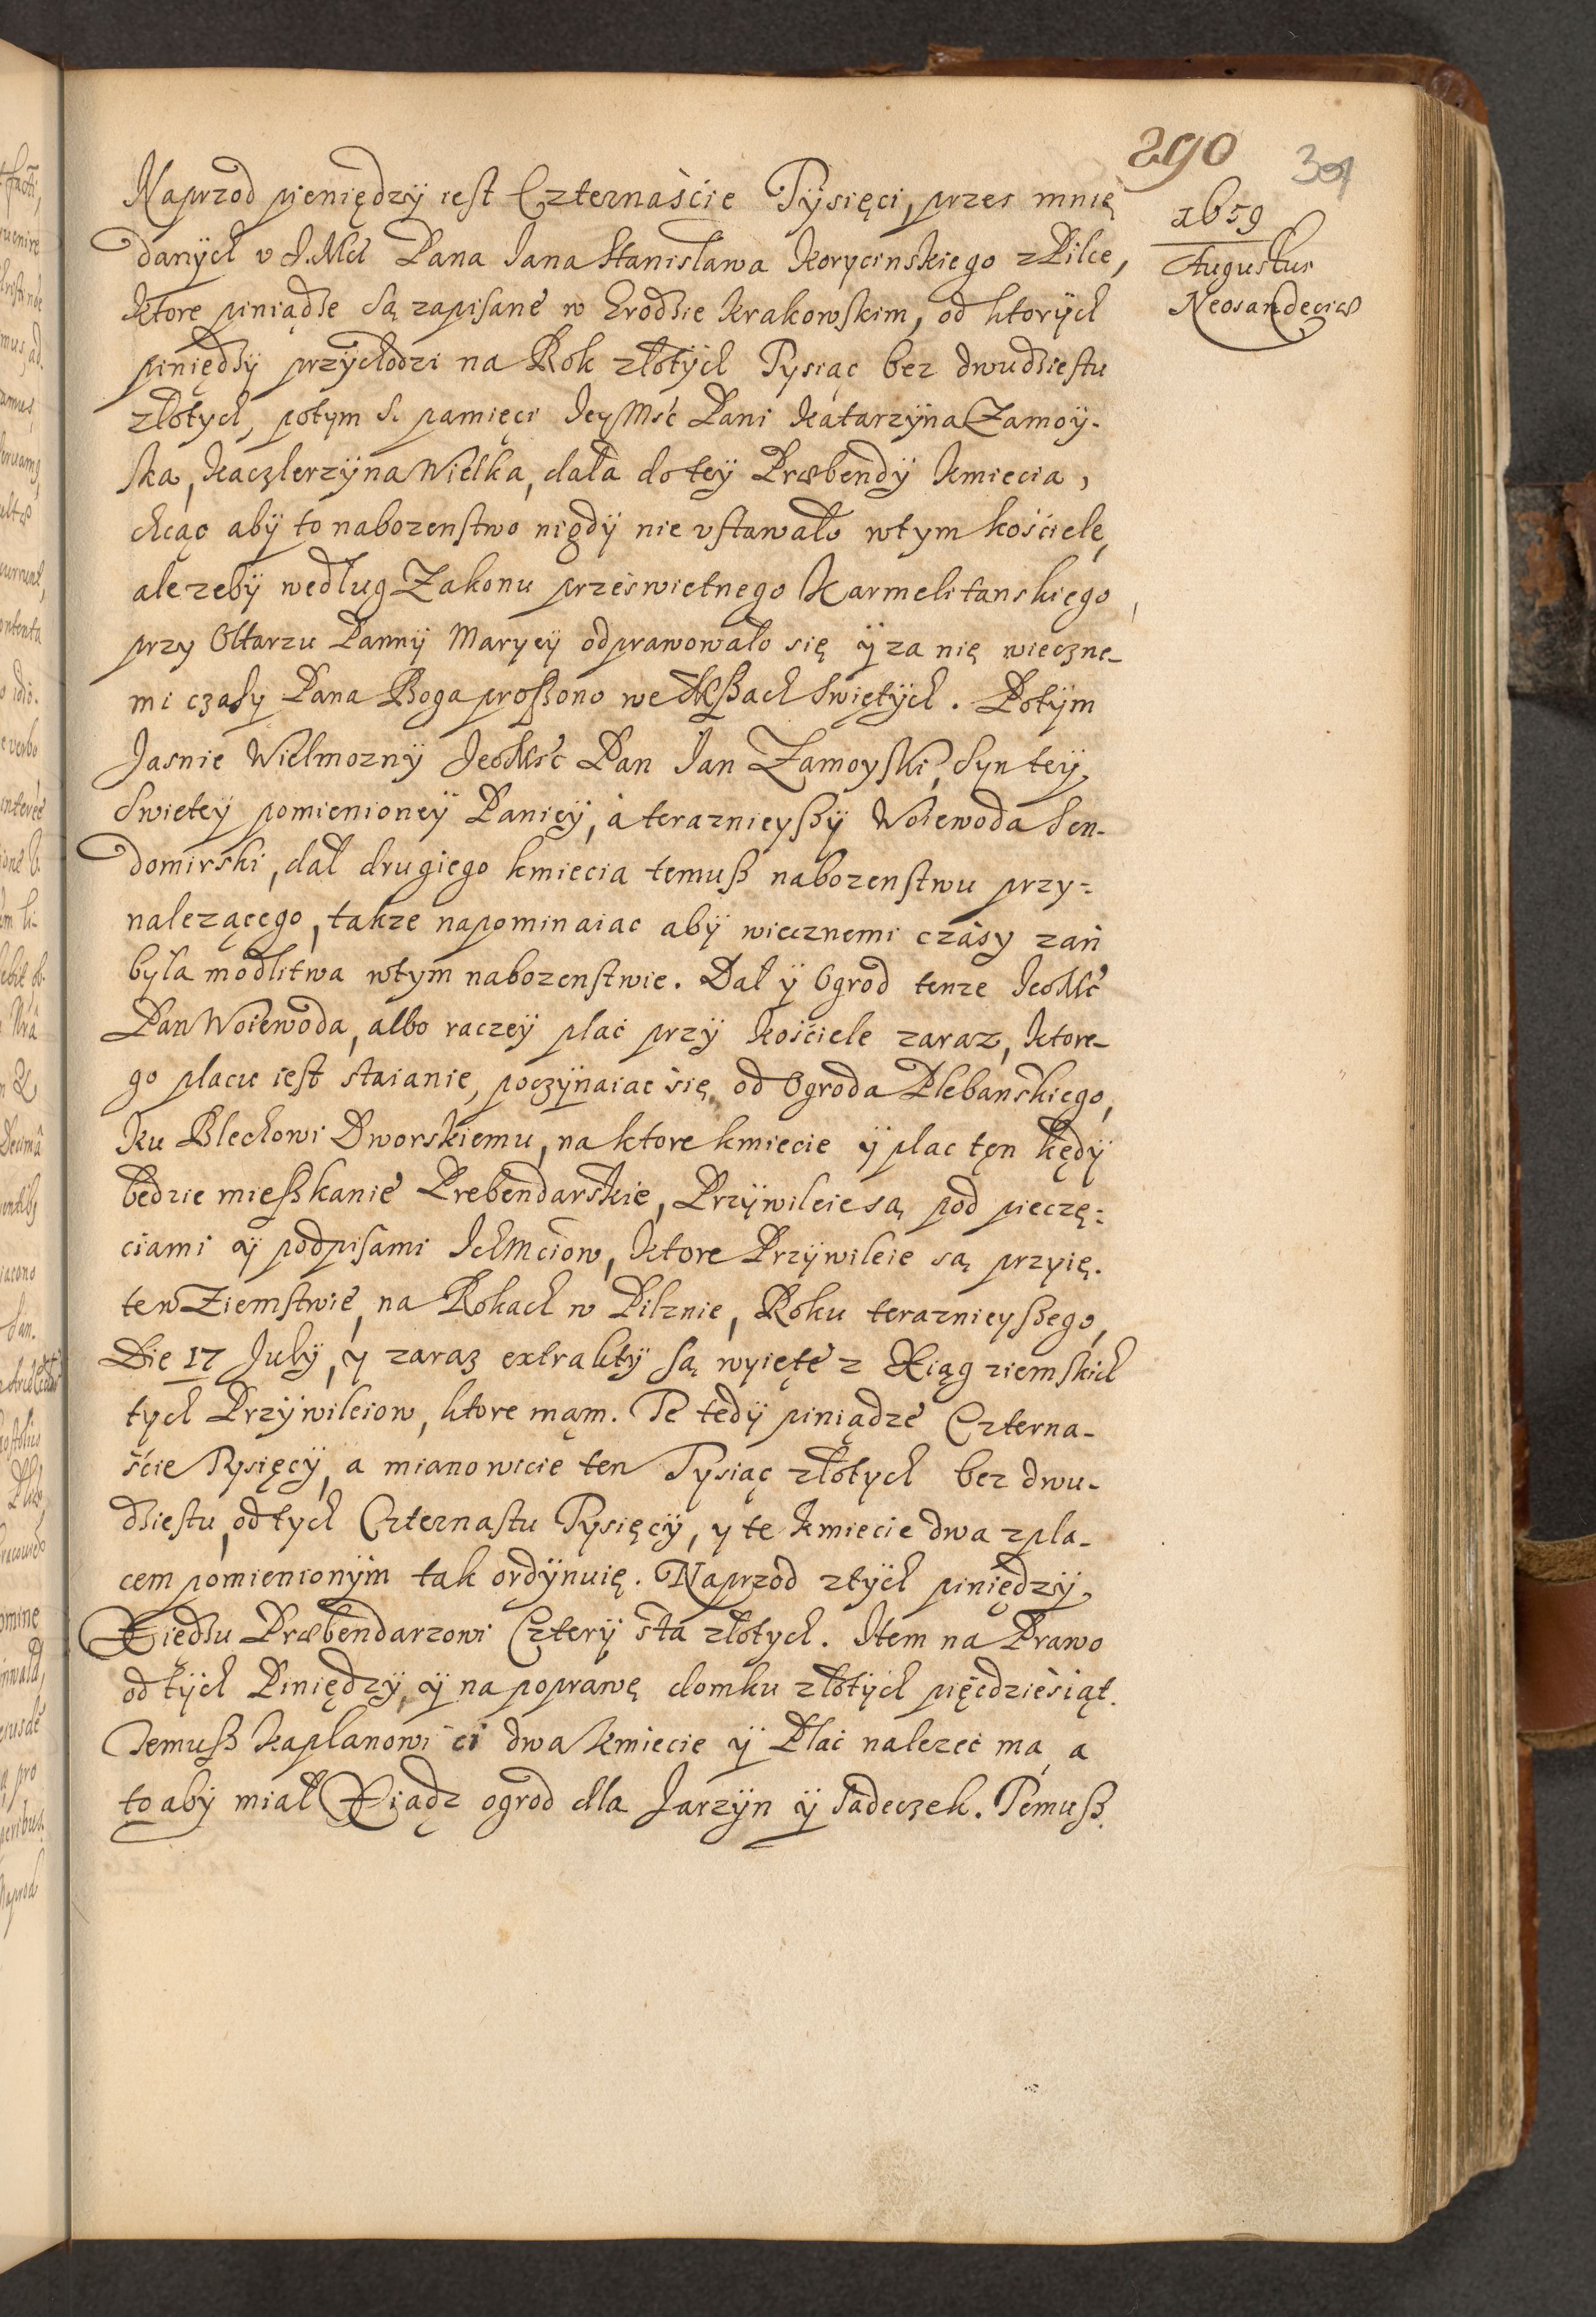 290
301
1659
Augustus
Neosandeciæ
Naprzod pieniędzÿ iest Czternaście Tÿsięci, przes mnię
danÿch v J.Mci Pana Jana Stanisława Korycinskiego z Pilce,
ktore piniądze są zapisane w Grodzie Krakowskim, od ktorÿch
piniędzÿ przÿchodzi na Rok złotÿch Tysiąc bez dwudziestu
złotych, potÿm S. pamięci JeyMść Pani Katarzÿna Zamoÿ-
ska, Kaczlerzÿna Wielka, dała do teÿ Præbendÿ Kmiecia,
chcąc abÿ to nabozenstwo nigdÿ nie vstawało wtym kościele,
ale zebÿ według Zakonu prześwietnego Karmelitanskiego
przy Ołtarzu Pannÿ Maryeÿ odprawowało się ÿ za nię wieczne-
mi czasy Pana Boga proszono we Mszach Swiętÿch. Potÿm
Jasnie Wielmoznÿ JeoMść Pan Jan Zamoyski, Syn teÿ
Swieteÿ pomienioneÿ Panieÿ, à teraznieyszÿ Woiewoda Sen-
domirski, dał drugiego kmiecia temusz nabozenstwu przy-
nalezącego, takze napominaiac abÿ wiecznemi czasy zań
była modlitwa wtym nabozenstwie. Dał ÿ Ogrod tenze JeoMć
Pan Woiewoda, albo raczeÿ plac przÿ Kościele zaraz, ktore-
go placu iest staianie, poczÿnaiac się od Ogroda Plebanskiego,
ku Blechowi Dworskiemu, na ktore kmiecie ÿ plac tęn kędÿ
będzie mieszkanie Prebendarskie, Przÿwileie są pod pieczę-
ciami ÿ podpisami IchMciow, ktore Przÿwileie są przyię-
te w Ziemstwie, na Rokach w Pilznie, Roku teraznieyszego,
Die 17 Julÿ, y zaraz extraktÿ są wyięte z Xiąg ziemskich
tych Przÿwileiow, ktore mąm. Te tedÿ piniądze Czterna-
ście Tysięcÿ, a mianowicie ten Tysiąc złotych bez dwu-
dziestu, od tych Czternastu Tysięcÿ, y te kmiecie dwa z pla-
cem pomienionÿm tak ordÿnuię. Naprzod z tÿch piniędzÿ,
Xiędzu Præbendarzowi Czterÿ sta złotych. Item na Prawo
od tÿch Piniędzy, ÿ na poprawę domku złotÿch pięćdziesiąt.
Temusz kapłanowi ci dwa kmiecie ÿ Plac nalezeć ma, a
to abÿ miał Xiądz ogrod dla Jarzÿn ÿ Sadeczek. Temusz